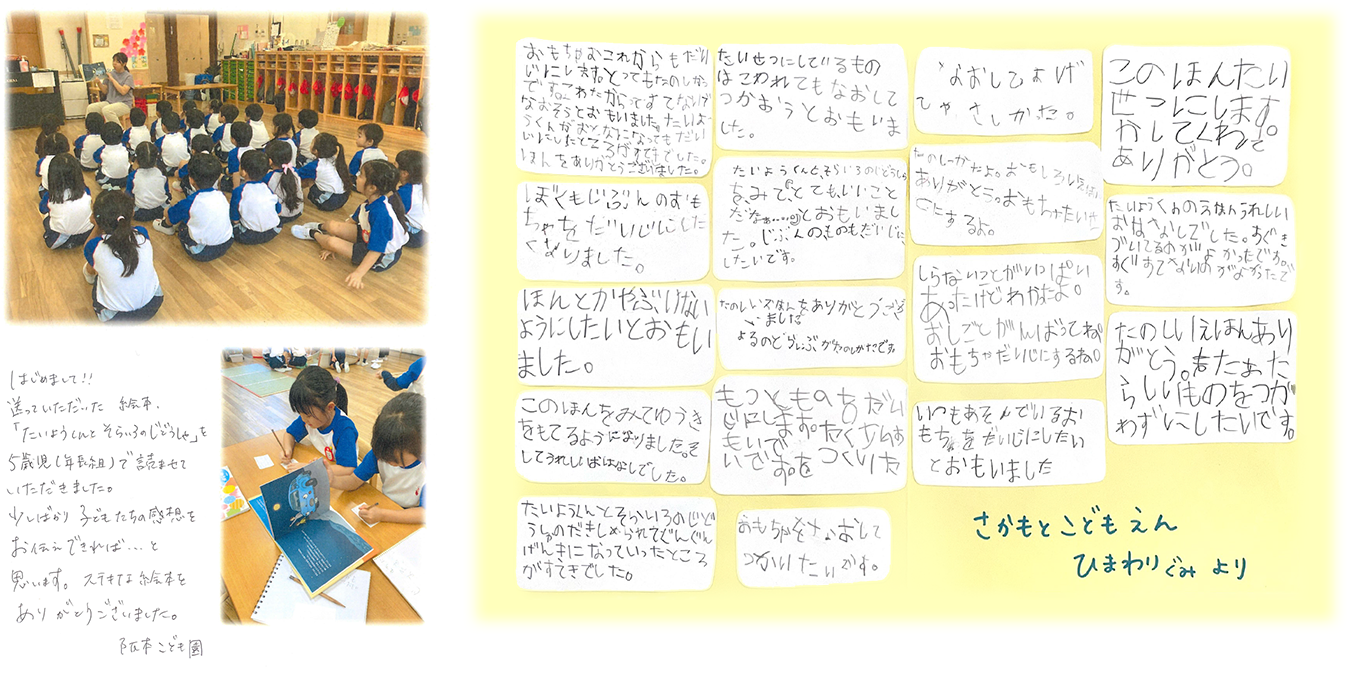 はじめまして!!
送っていただいた 絵本、
「たいようくんと そらいろのじどうしゃ」を
5歳児(年長組)で読ませて
いただきました。
少しばかり 子どもたちの感想を
お伝えできれば…と
思います。ステキな絵本を
ありがとうございました。
阪本こども園
おもちゃおこれからもだい
じにします。とってもたのしかった
です。こわれたからってすてないで
なおそうとおもいました。たいよ
うくんがおとなになってもだい
じにしたところがすてきでした。
ほんをありがとうございました。
ぼくもじぶんのおも
ちゃをだいじにしたく
なりました。
ほんとかやぶけない
ようにしたいとおもい
ました。
このほんをみてゆうき
をもてるようになりました。そ
してうれしいおはなしでした。
たいようくんとそらいろのじど
うしゃのだきしめられてどんどん
げんきになっていったところ
がすてきでした。
たいせつにしているもの
はこわれてもなおして
つかおうとおもいま
した。
たいようくんとそらいろのじどうしゃ
をみて、とてもいいこと
だなぁ……。とおもいまし
た。じぶんのものも、だいじに、
したいです。
たのしいえほんをありがとうござ
いました
よるのどらいぶがたのしかたです。
もっとものをだい
じにします。
おもちゃをなおして
つかいたいです。
なおしてあげ
て、やさしかった。
たのしーかたよ。おもしろいえほん
ありがとう。おもちゃたいせ
つにするよ。
しらないことがいっぱい
あったけどわかたよ。
おしごとがんばってね。
おもちゃだい心にするね。
いつもあそんでいるお
もちゃをだい心にしたい
とおもいました
このほんたい
せつにします。
かしてくれて
ありがとう。
たいようくんのえほんうれしい
おはなしでした。すぐき
づいてるのがよかったです。
すぐすてないのがよかったで
す。
たのしいえほんあり
がとう。またあた
らしいものをつか
わずにしたいです。
さかもと こども えん
ひまわりぐみ より